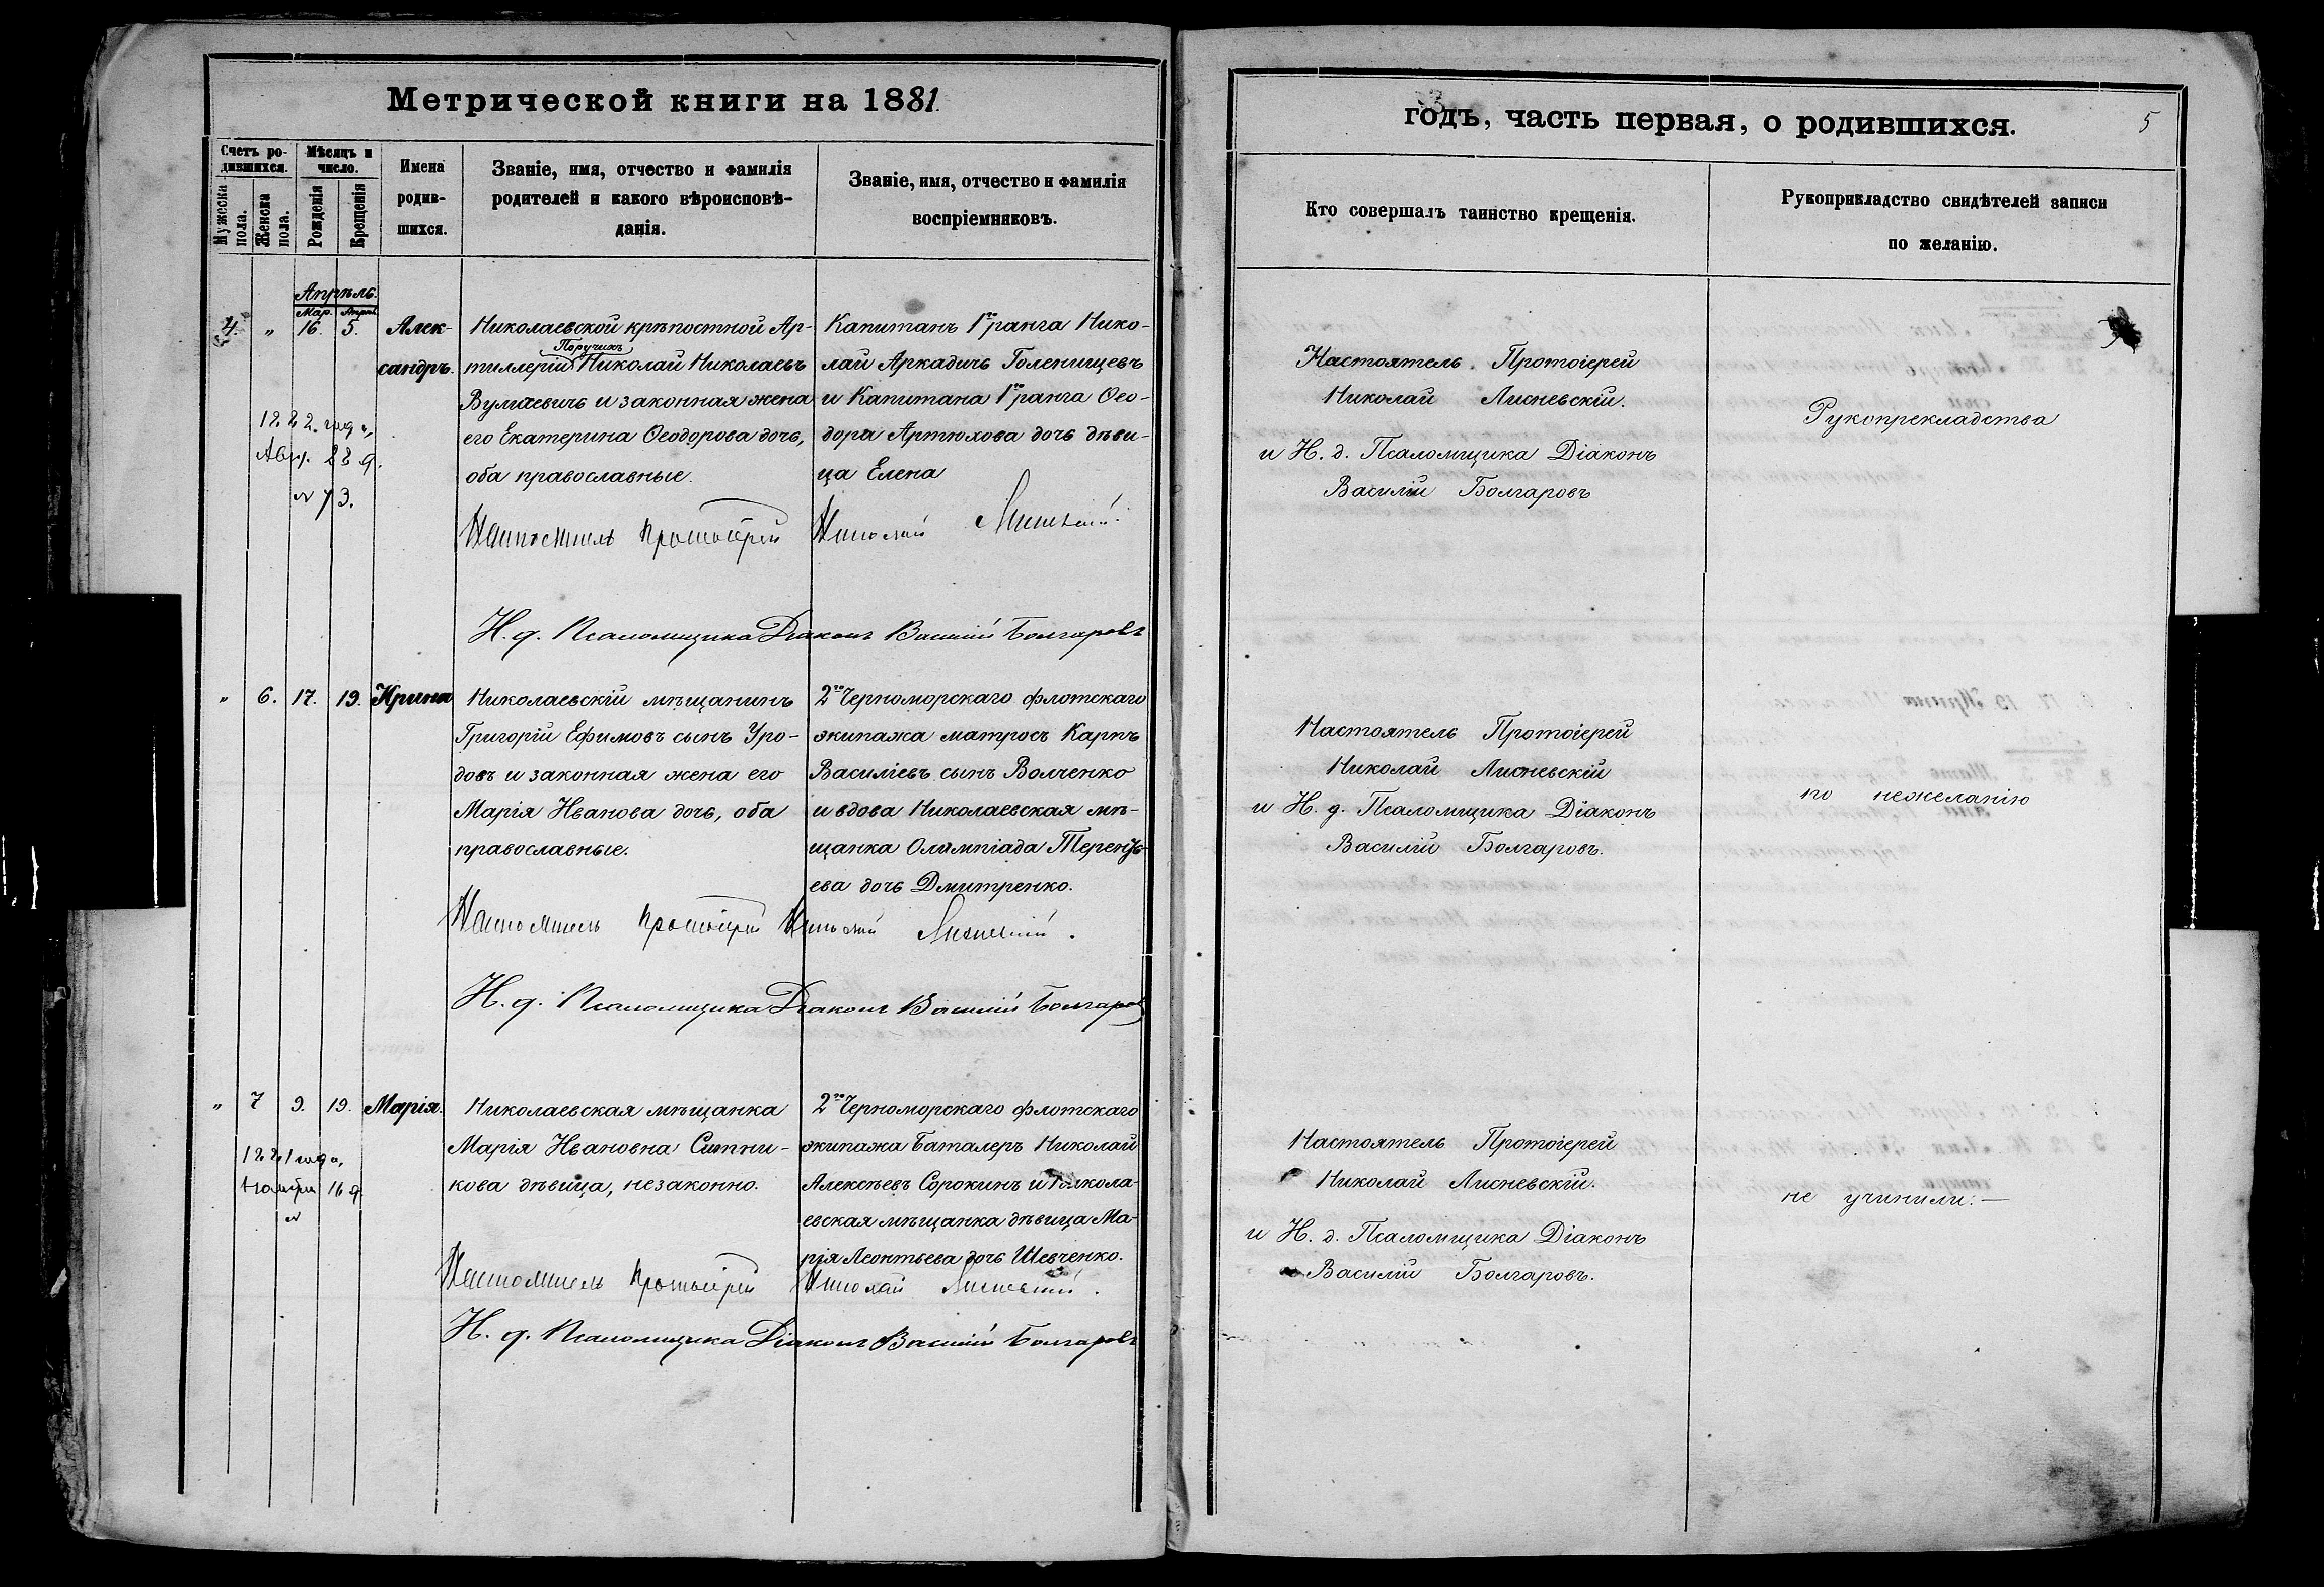 Метрической книги на 1881.
Счетъ ро-
дившихся.
Мѣсяцъ и
число.
Мужеска
пола.
Женска
пола.
Рожденія
Крещенія
Имена
родив-
шихся.
Званіе, имя, отчество и фамилія
родителей и какого вѣроисповѣ-
данія.
Званіе, имя, отчество и фамилія
воспріемниковъ.
Апрѣль.
Мар. Апрѣл.
4. " 16. 5.
Алек-
сандръ.
Николаевской крѣпостной Ар-
Поручикъ
тиллеріи Николай Николаевъ
и законная жена
его Екатерина Ѳеодорова дочь,
оба православные.
Капитанъ 1го ранга Нико-
лай Аркадичь Голенищевъ
и Капитана 1го ранга Ѳео-
дора Артюхова дочь дѣви-
ца Елена
1882. года,
Авг. 28 д.
№ 73.
Настоятель Протоіерей Николай Лисневскій.
Н. д. Псаломщика Діаконъ Василій Болгаровъ
" 6. 17. 19. Ирина
Николаевскій мѣщанинъ
Григорій Ефимовъ сынъ Уро-
довъ и законная жена его
Марія Иванова дочь, оба
православные.
2го Черноморскаго флотскаго
экипажа матросъ Карпъ
Василіевъ сынъ Волченко
и вдова Николаевская мѣ-
щанка Олимпіада Теренть-
ева дочь Дмитренко.
Настоятель Протоіерей Николай Лисневскій.
Н. д. Псаломщика Діаконъ Василій Болгаровъ
" 7 9. 19. Марія.
Николаевская мѣщанка
Марія Ивановна Ситни-
кова дѣвица, незаконно.
2го Черноморскаго флотскаго
экипажа Баталеръ Николай
Алексѣевъ Сорокинъ и Никола-
евская мѣщанка дѣвица Ма-
рія Леонтьева дочь Шевченко.
1881 года,
Ноября 16 д.
№
Настоятель Протоіерей Николай Лисневскій.
Н. д. Псаломщика Діаконъ Василій Болгаровъ
годъ, часть первая, о родившихся.
5
Кто совершалъ таинство крещенія.
Рукоприкладство свидѣтелей записи
по желанію.
Настоятель Протоіерей
Николай Лисневскій.
и Н. д. Псаломщика Діаконъ
Василій Болгаровъ
Рукопрекладства
Настоятель Протоіерей
Николай Лисневскій
и Н. д. Псаломщика Діаконъ
Василій Болгаровъ.
по нежеланію
Настоятель Протоіерей
Николай Лисневскій.
и Н. д. Псаломщика Діаконъ
Василій Болгаровъ.
не учинили.—